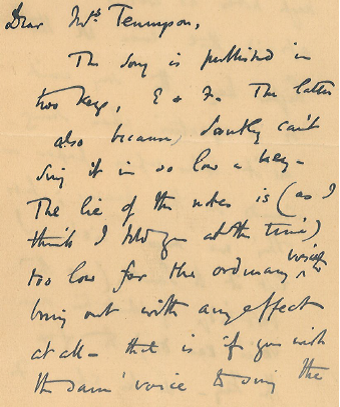 Dear Mrs Tennyson,
The song is published in
two keys, E & F. The latter
also because Santley can't
sing it in so low a key –
The lie of the notes is (as I
think I told you at the time)
too low for the ordinary voice to
bring out with any effect
at all – that is if you wish
the same voice to sing the